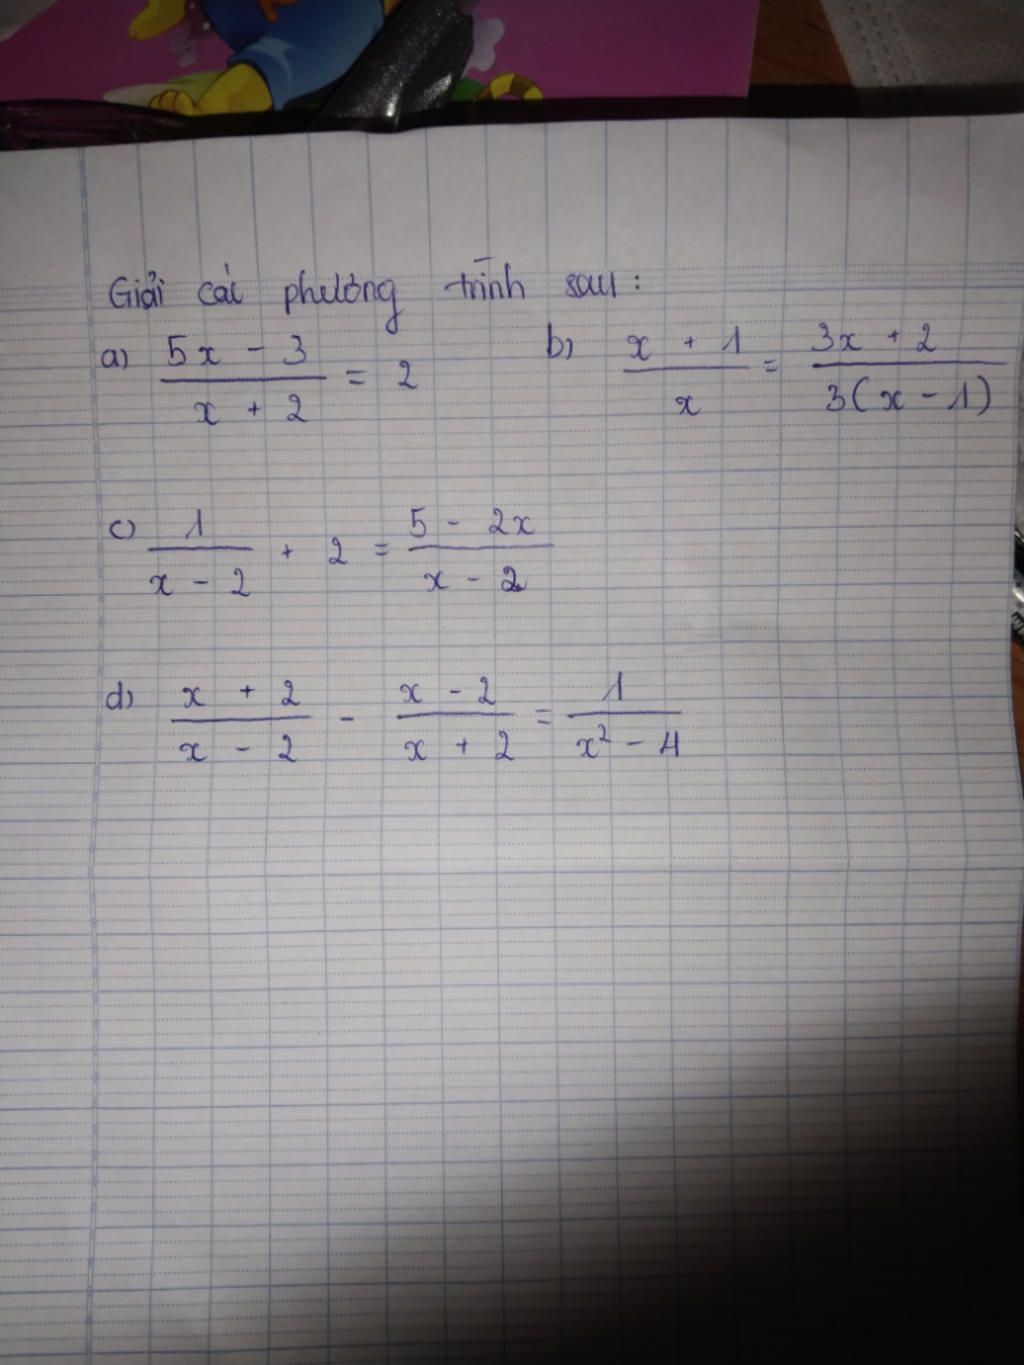 Giải các phương trình sau :
a) (5x - 3)/(x + 2) = 2   b) (x + 1)/x = (3x + 2)/(3(x - 1))
c) 1/(x - 2) + 2 = (5 - 2x)/(x - 2)
d) (x + 2)/(x - 2) - (x - 2)/(x + 2) = 1/(x² - 4)